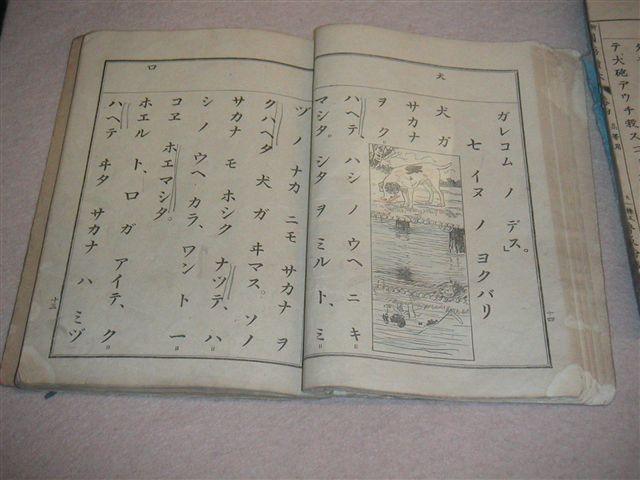 犬
ガ レコム ノ デス。」
七 イヌ ノ ヨクバリ
犬 ガ
サカナ
ヲ ク
ハヘテ ハシ ノ ウヘ ニ キ
マシタ。シタ ヲ ミルト、ミ
十四
口
ヅ ノ ナカ ニモ サカナ ヲ
クハヘタ 犬 ガ ヰマス。ソノ
サカナ モ ホシク ナツテ、ハ
シ ノ ウヘ カラ、ワント 一
コヱ ホエマシタ。
ホエル ト、口 ガ アイテ、ク
ハヘテ ヰタ サカナ ハ ミヅ
十五